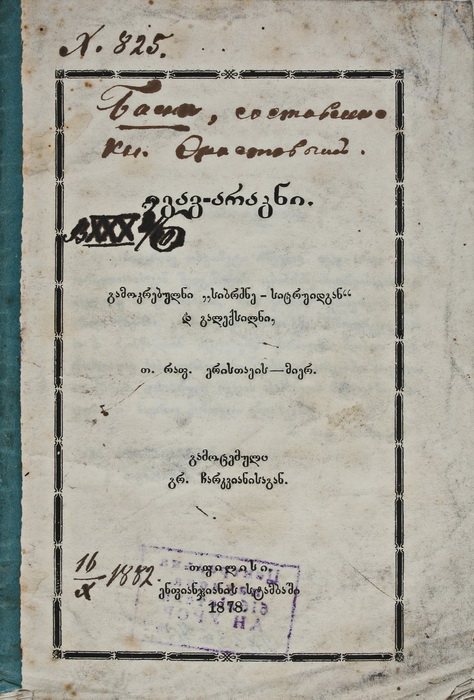 X. 825.
Басни, составлено
кн. Эристовымъ.
იგავ-არაკნი.
გამოკრებულნი „სიბრძნე-სიცრუიდგან“
და გალექსილნი,
თ. რაფ. ერისთავის—მიერ.
გამოცემული
გრ. ჩარკვიანისაგან.
16/X-1882.
თფილისი.
ენფიანჯიანის სტამბაში
1878.